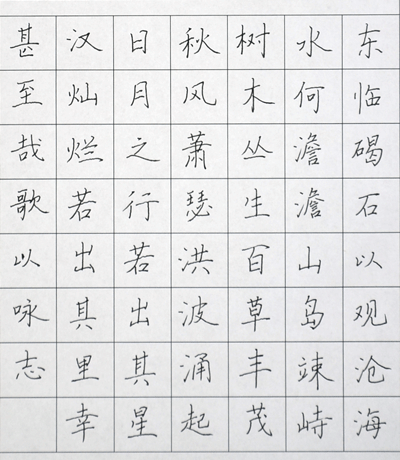 东临碣石以观沧海
水何澹澹山岛竦峙
树木丛生百草丰茂
秋风萧瑟洪波涌起
日月之行若出其星
汉灿烂若出其里幸
甚至哉歌以咏志